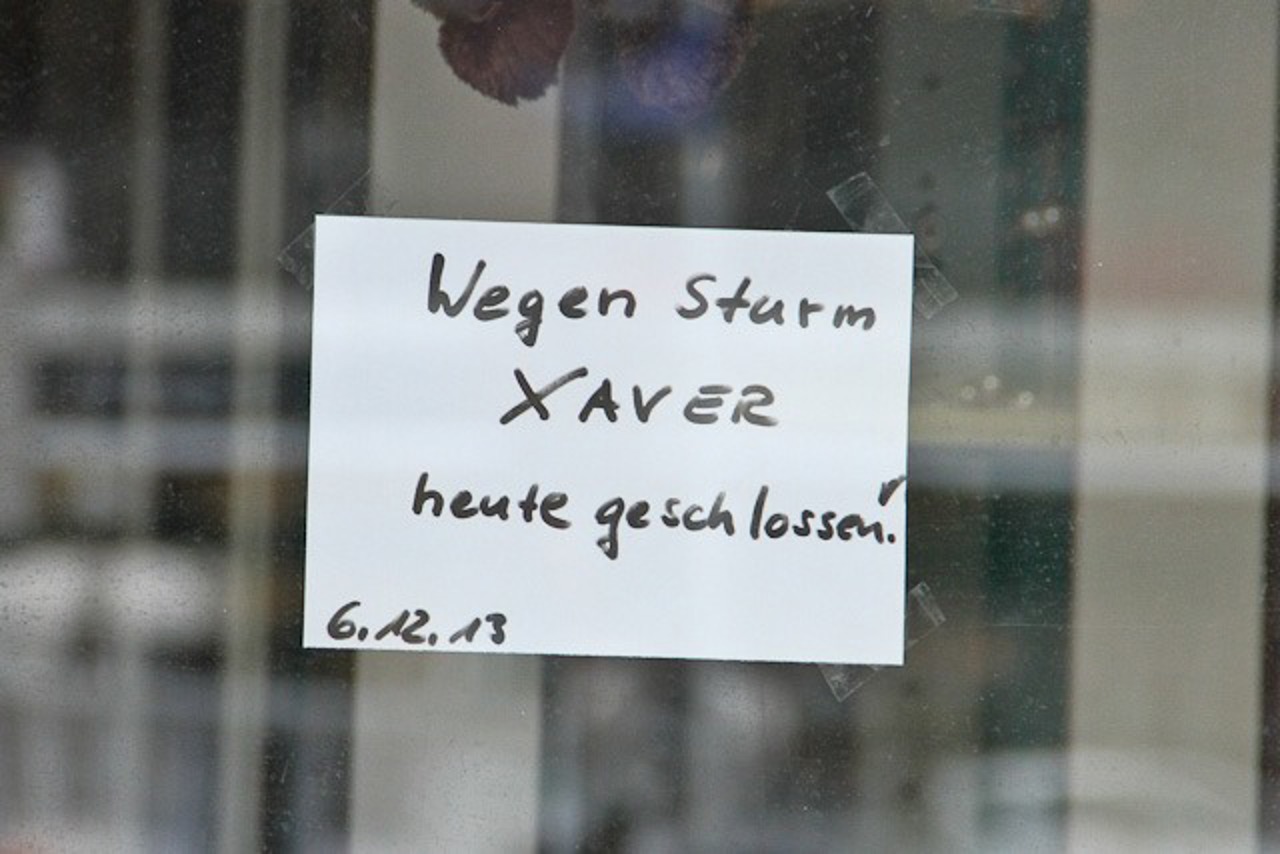 Wegen Sturm
XAVER
heute geschlossen!
6.12.13